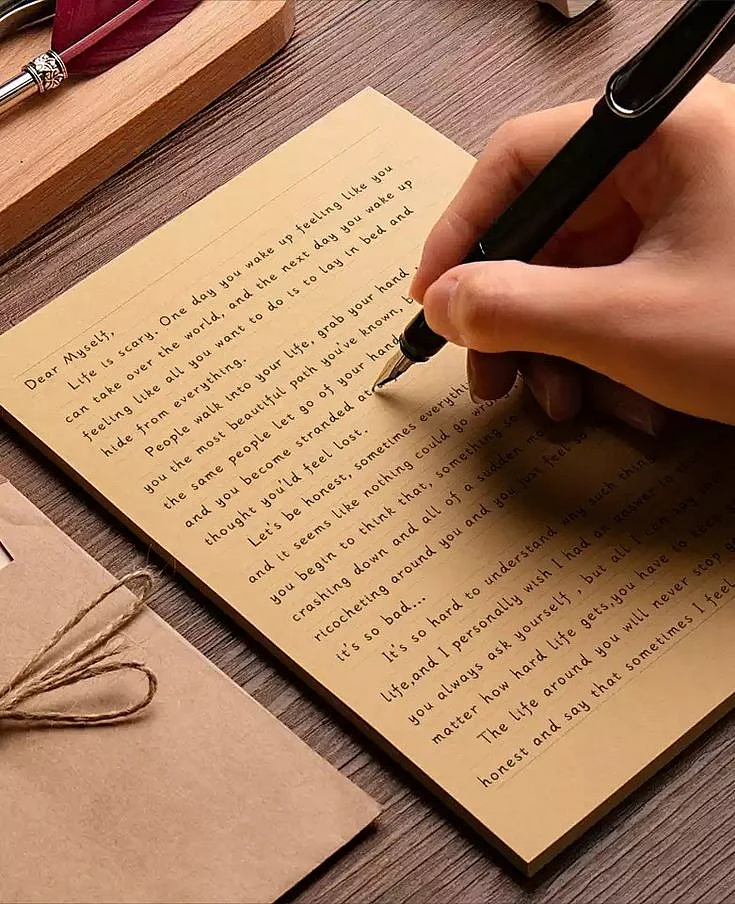 Dear Myself,
Life is scary. One day you wake up feeling like you
can take over the world, and the next day you wake up
feeling like all you want to do is to lay in bed and
hide from everything.
People walk into your life, grab your hand
you the most beautiful path you've known,
the same people let go of your hand
and you become stranded
thought you'ld feel lost.
Let's be honest, sometimes
and it seems like nothing could go
you begin to think that, something
crashing down and all of a sudden
ricocheting around you and you just feel
it's so bad...
It's so hard to understand why such
life,and I personally wish I had an answer to
you always ask yourself , but all I can say
matter how hard life gets,you have to keep
The life around you will never stop
honest and say that sometimes I feel